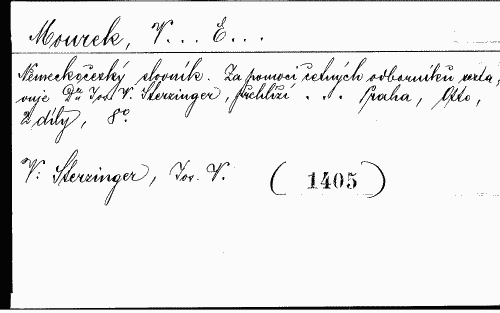 Mourek, V... E...
Německočeský slovník. Za pomoci četných odborníků sestavuje
Dr. Jos. V. Sterzinger, přehlíží ... Praha, Otto,
2 díly, 8°.
V: Sterzinger, Jos. V. (1405)